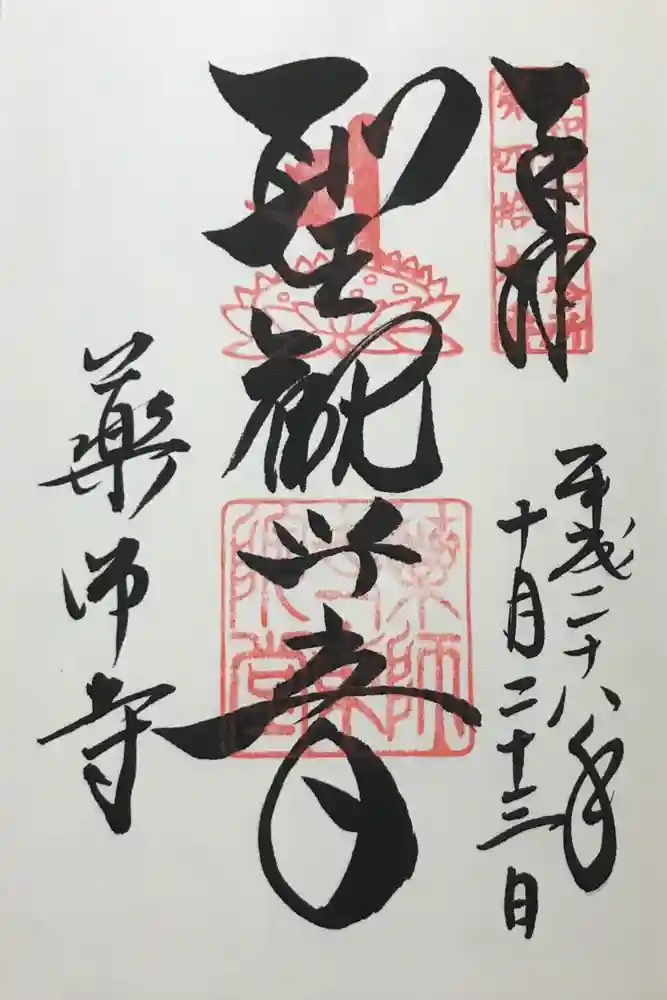 奉拝
第四拾
平成二十八年
十月二十三日
聖観世音
薬師
寺東
院堂
薬師寺